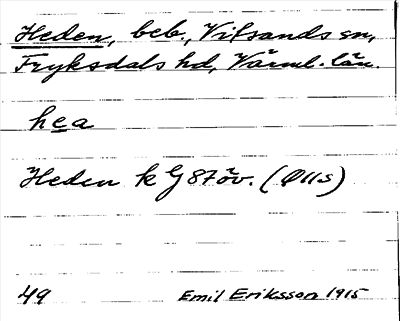 Heden, beb., Vitsands sn,
Fryksdals hd, Värml. län.
hea
Heden k G 87 öv. (Ø11s)
49 Emil Eriksson 1915